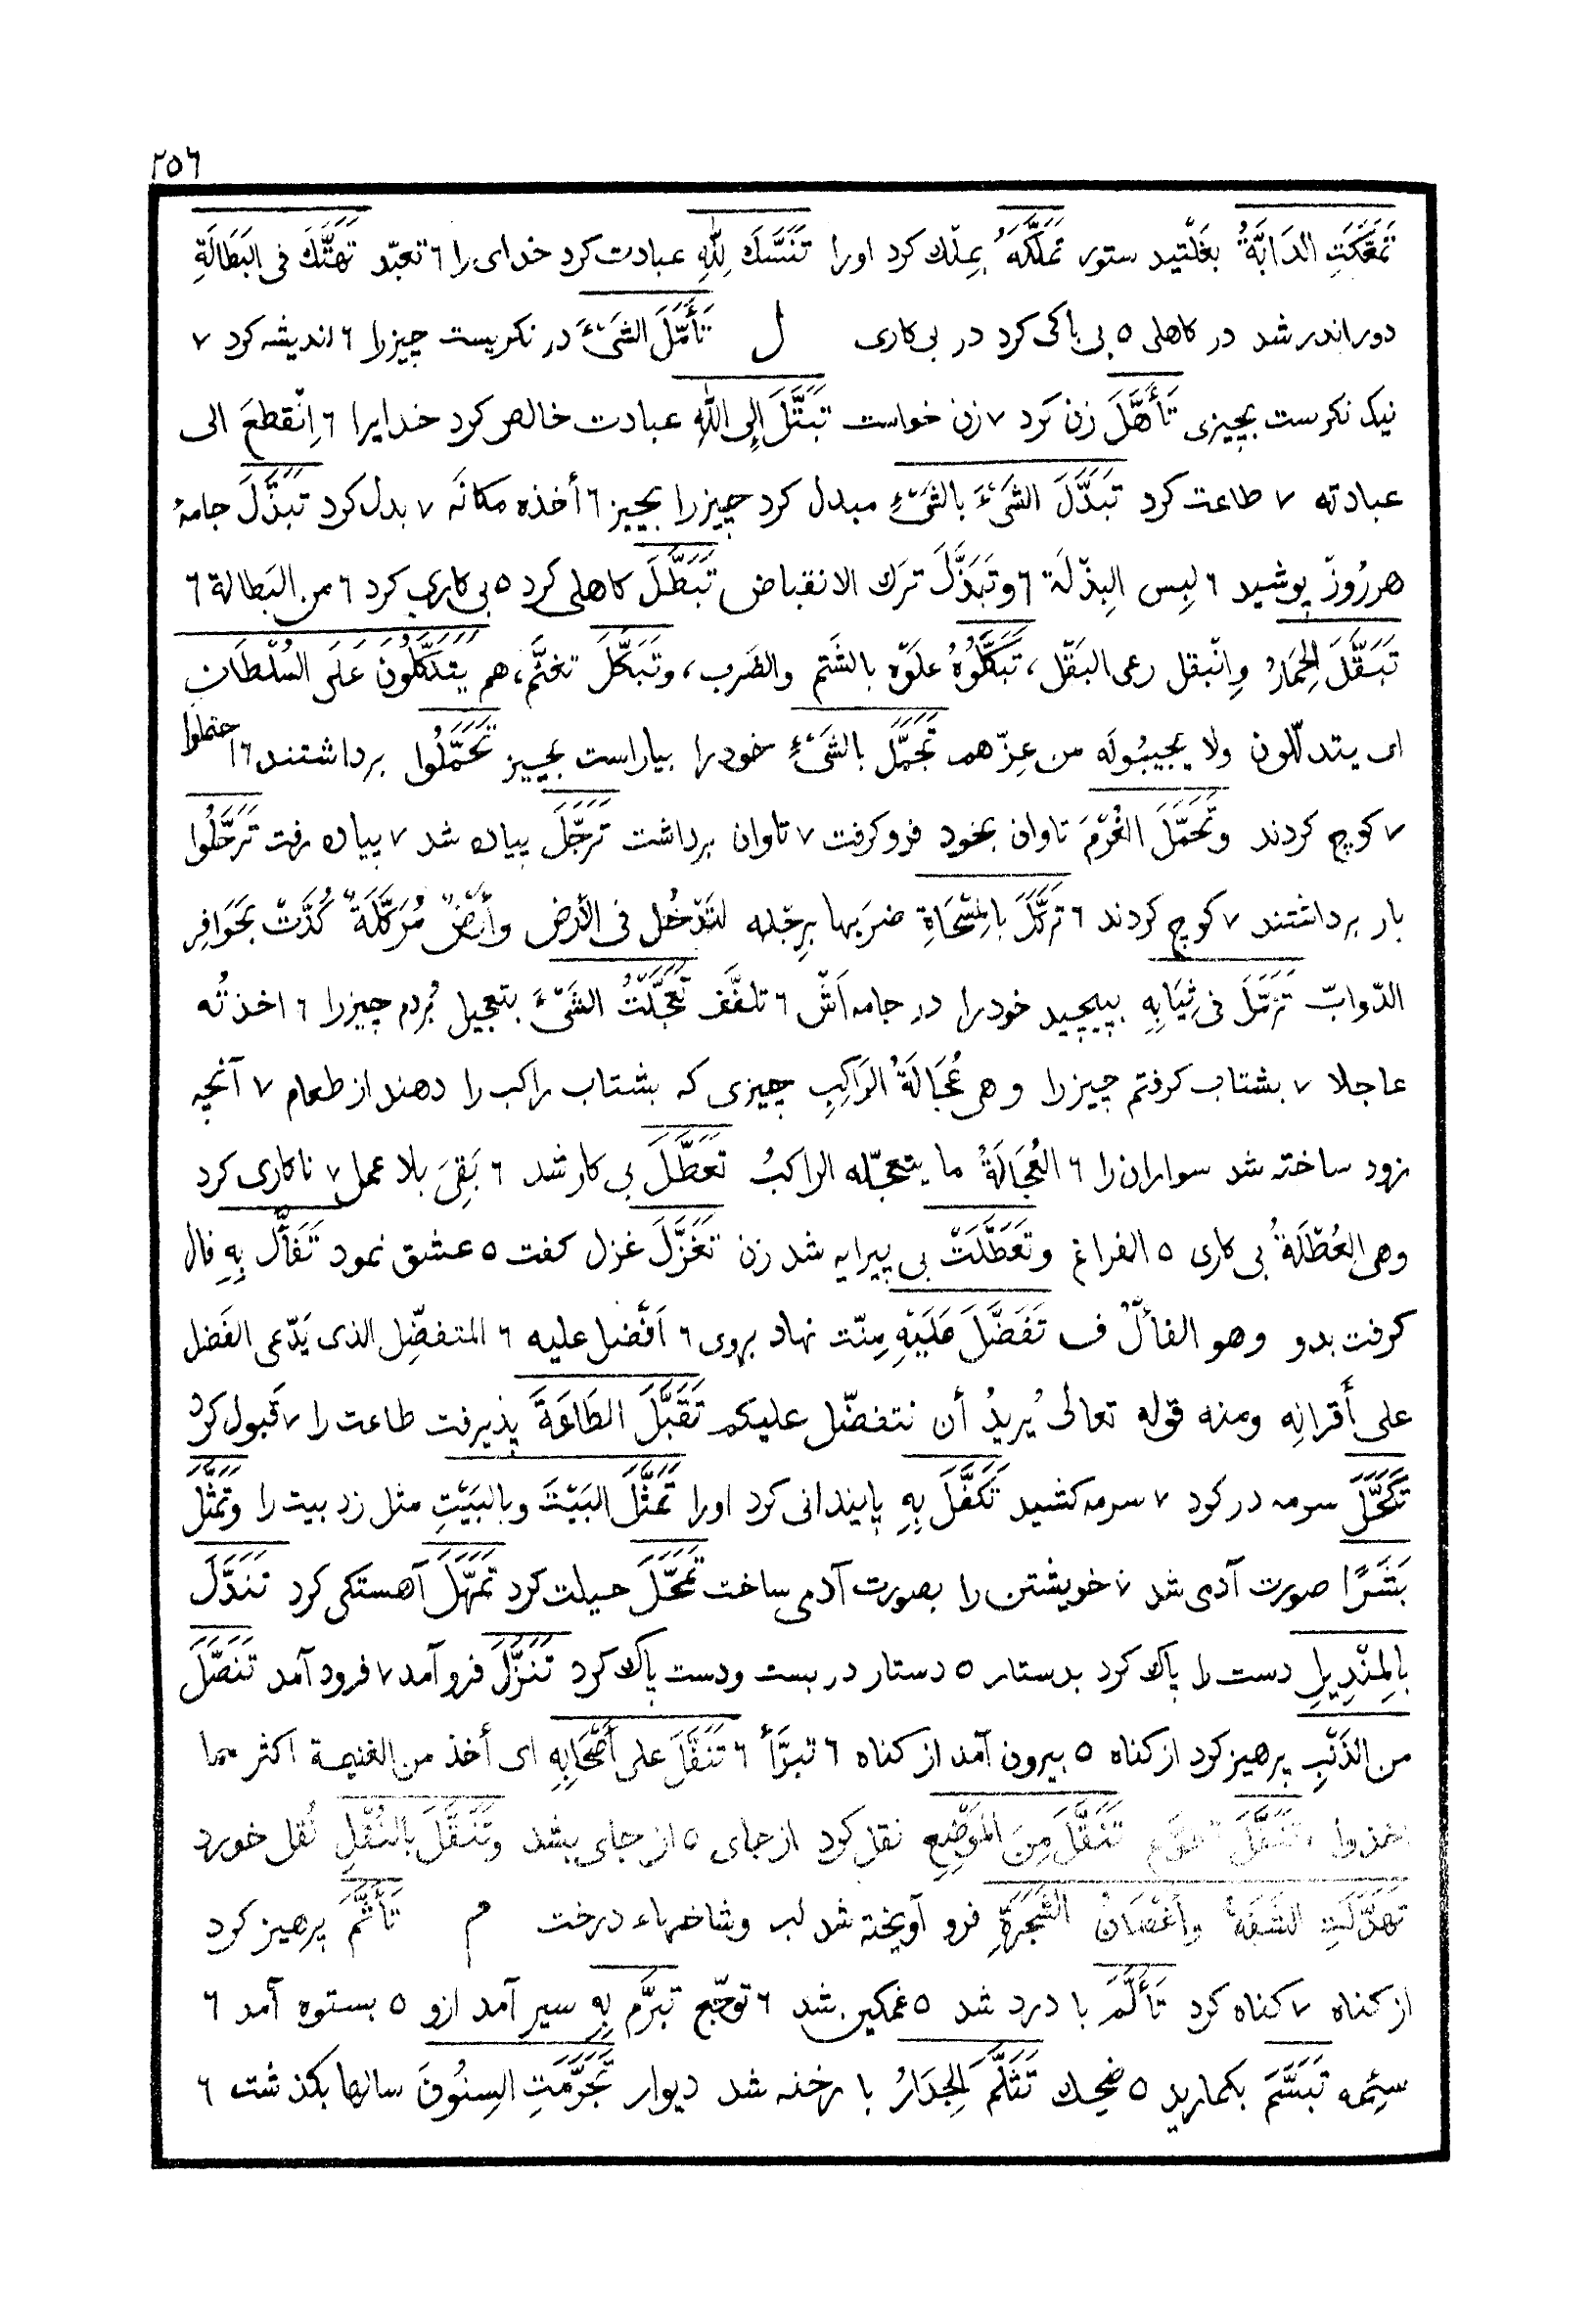 ٢٥٦
تَمَعَّكَتِ الدَابَّةُ بغَلْتيد ستور تَمَلَّكَهُ بملك كرد اورا تَنَسَّكَ لِلّٰهِ عبادت كرد خداى را ٦ تعبّد تَهَتَّكَ فى البَطَالَةِ
دور اندر شد در كاهلى ٥ بى باكى كرد در بى كارى ل تَأَمَّلَ الشَىْءَ در نكريست چيزرا ٦ انديشه كرد ٧
نيک نكرست بچيزى تَأَهَّلَ زن كرد ٧ زن خواست تَبَتَّلَ إِلى اللهِ عبادت خالص كرد خدايرا ٦ اِنْقطعَ الى
عبادته ٧ طاعت كرد تَبَدَّلَ الشَىْءَ بالشَىْءِ مبدل كرد چيزرا بچيز ٦ أخذه مكانَه ٧ بدل كرد تَبَذَّلَ جامهٔ
هررُوز پوشيد ٦ لبِس البِذْلَة ٦ وتَبَذَّلَ ترَك الانقباض تَبَطَّلَ كاهلى كرد ٥ بى كارى كرد ٦ من البَطالة ٦
تَبَقَّلَ الحِمَارُ وانْبقل رعى البَقْل، تَبَكَّلُوهُ علَوْه بالشَتم والضَرب، وتَبَكَّلَ تغنَّم، هم يَتَدَكَّلُونَ عَلَى السُلْطَانِ
اى يتدلّلون ولا يجيبُوله من عِزّهم تَجَمَّلَ بالشَىْءِ خودرا بياراست بچيز تَحَمَّلُوا برداشتند ٦ احتملوا
٧ كوچ كردند وتَحَمَّلَ الغُرْمَ تاوان بخود فرو كرفت ٧ تاوان برداشت تَرَجَّلَ پياده شد ٧ پياده رفت تَرَحَّلُوا
بار برداشتند ٧ كوچ كردند ٦ تَرَكَّلَ بالمِسْحَاةِ ضرَبها برِجْله لتَدْخُل فى الأرض وأرضٌ مُرَكَّلَةٌ كُدَّتْ بحَوَافِر
الدّوابّ تَزَمَّلَ فى ثِيَابِهِ بپيچيد خودرا در جامه اَش ٦ تلفَّف تَعَجَّلْتُ الشَىْءَ بتعجيل بُردم چيزرا ٦ اخذتُه
عاجلا ٧ بشتاب كرفتم چيزرا وهى عُجَالَةُ الرَاكِبِ چيزى كه بشتاب راكب را دهند از طعام ٧ آنچه
زود ساخته شد سواران را ٦ العُجَالَةُ ما يتعجّله الراكبُ تَعَطَّلَ بى كار شد ٦ بَقِىَ بلا عمل ٧ ناكارى كرد
وهى العُطْلَةُ بى كارى ٥ الفراغ وتَعَطَّلَتْ بى پيرايه شد زن تَغَزَّلَ غزل كفت ٥ عشق نمود تَفَأَّلَ بِهِ فال
كرفت بدو وهو الفأل ف تَفَضَّلَ عَلَيْهِ مِنّت نهاد بروى ٦ اَفْضل عليه ٦ المتفضِّل الذى يَدّعى الفَضل
على أَقرانِه ومنه قوله تعالى يُريدُ أن نتفضّل عليكم تَقَبَّلَ الطَاعَةَ پذيرفت طاعت را ٧ قبول كرد
تَكَحَّلَ سرمه در كرد ٧ سرمه كشيد تَكَفَّلَ بِهِ پايندانى كرد اورا تَمَثَّلَ البَيْتَ وبالبَيْتِ مثل زد بيت را وتَمَثَّلَ
بَشَرًا صورت آدمى شد ٧ خويشتن را بصورت آدمى ساخت تَمَحَّلَ حيلت كرد تَمَهَّلَ آهستكى كرد تَنَدَّلَ
بالمِنْدِيلِ دست را پاک كرد بدستار ٥ دستار در بست ودست پاک كرد تَنَزَّلَ فرو آمد ٧ فرود آمد تَنَصَّلَ
من الذَنْبِ پرهيز كرد از كناه ٥ بيرون آمد از كناه ٦ تبرَّأ ٦ تَنَفَّلَ على أصْحَابِهِ اى أخذ من الغنيمة اكثر مما
اخذوا تَنَفَّلَ تَنَقَّلَ مِنَ المَوْضِعِ نقل كرد از جاى ٥ از جاى بشد وتَنَقَّلَ بالنُقْلِ نُقل خورد
تَهَدَّلَتِ الشَفَةُ وأَغْصَانُ الشَجَرَةِ فرو آويخته شد لب وشاخهاء درخت م تَأَثَّمَ پرهيز كرد
از كناه ٧ كناه كرد تَأَلَّمَ با درد شد ٥ غمكين شد ٦ توجّع تَبَرَّم بِهِ سير آمد ازو ٥ بستوه آمد ٦
سئِمه تَبَسَّمَ بكماريد ٥ ضحِک تَثَلَّمَ الجِدَارُ با رخنه شد ديوار تَجَرَّمَتِ السِنُونَ سالها بكذشت ٦